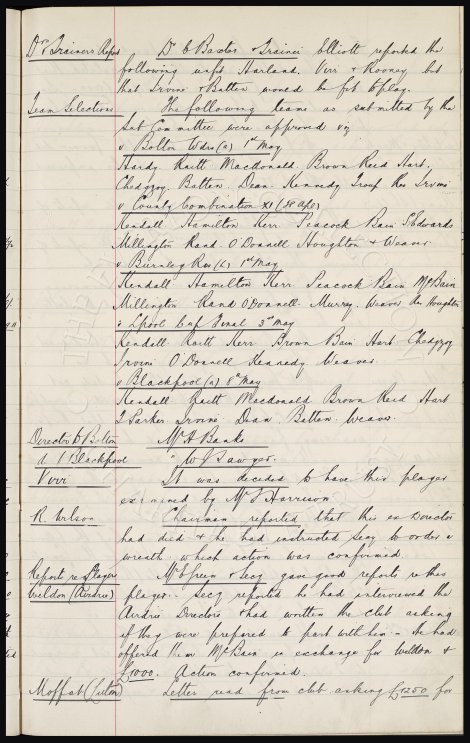 Drs & Trainers Report Dr C Baxter & Trainer Elliott reported the
following unfit Harland, Virr & Rooney but
that Irvine & Batten would be fit to play.
Team Selections The following teams as submitted by the
Sub Committee were approved viz
v Bolton Wdrs (a) 1st May
Hardy. Raitt Macdonald. Brown Reid Hart,
Chedgzoy. Batten. Dean. Kennedy Troup Res Irvine
v County Combination XI (28 Apl)
Kendall Hamilton Kerr. Peacock Bain S Edwards
Millington Rand O'Donnell Houghton & Weaver
v Burnley Res (h) 1st May
Kendall Hamilton Kerr. Peacock Bain McBain
Millington Rand O'Donnell. Murray. Weaver Res Houghton
v Lpool Cup Final 3rd May
Kendall. Raitt Kerr Brown Bain Hart Chedgzoy
Irvine O'Donnell Kennedy Weaver
v Blackpool (a) 8th May
Kendall Raitt Macdonald Brown Reid Hart
J Parker. Irvine Dean Batten Weaver.
Director to Bolton Mr H Banks
d. t. Blackpool " W J Sawyer.
Virr It was decided to have this player
examined by Mr J Harrison
R. Wilson Chairman reported that this ex Director
had died & he had instructed Secy to order a
wreath. which action was confirmed
Reports re Players Mr Green & Secy gave good reports re this
Weldon (Airdrie) player. Secy reported he had interviewed the
Airdrie Directors & had written the club asking
if they were prepared to part with him - He had
offered them McBain in exchange for Weldon &
£1000. Action confirmed.
Moffat (Luton) Letter read from club asking £1250 for